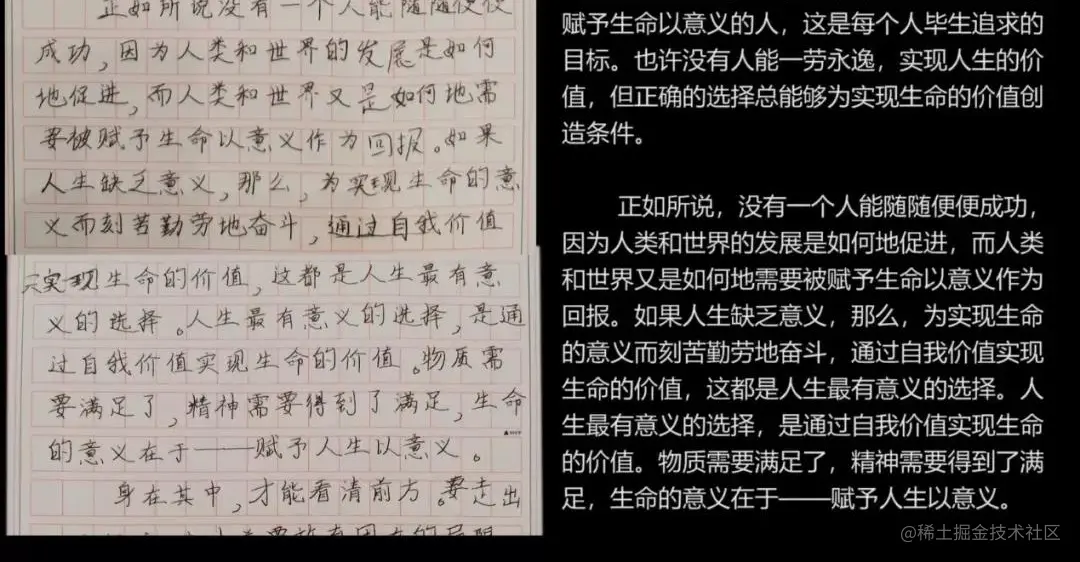 正如所说没有一个人能随随便便
成功，因为人类和世界的发展是如何
地促进，而人类和世界又是如何地需
要被赋予生命以意义作为回报。如果
人生缺乏意义，那么，为实现生命的意
义而刻苦勤劳地奋斗，通过自我价值
实现生命的价值，这都是人生最有意
义的选择。人生最有意义的选择，是通
过自我价值实现生命的价值。物质需
要满足了，精神需要得到了满足，生命
的意义在于——赋予人生以意义。
身在其中，才能看清前方。要走出
赋予生命以意义的人，这是每个人毕生追求的
目标。也许没有人能一劳永逸，实现人生的价
值，但正确的选择总能够为实现生命的价值创
造条件。
正如所说，没有一个人能随随便便成功，
因为人类和世界的发展是如何地促进，而人类
和世界又是如何地需要被赋予生命以意义作为
回报。如果人生缺乏意义，那么，为实现生命
的意义而刻苦勤劳地奋斗，通过自我价值实现
生命的价值，这都是人生最有意义的选择。人
生最有意义的选择，是通过自我价值实现生命
的价值。物质需要满足了，精神需要得到了满
足，生命的意义在于——赋予人生以意义。
@稀土掘金技术社区